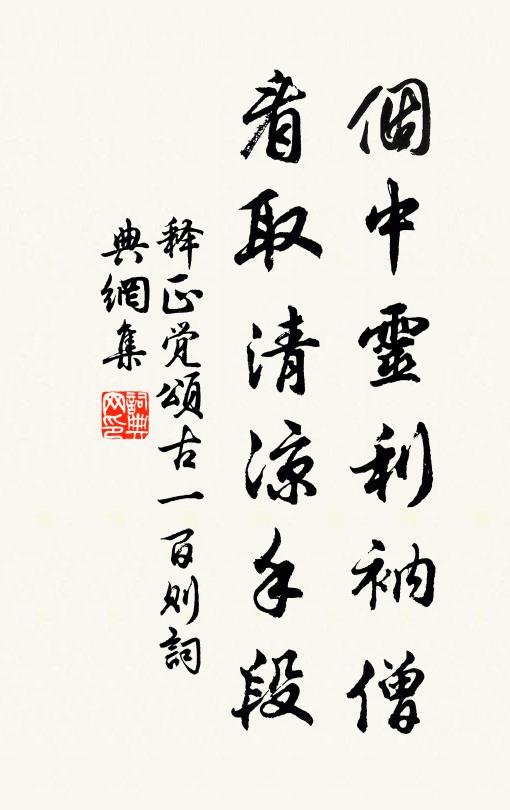 個中靈利衲僧
看取清涼手段
释正觉頌古一百则詞
典網集
詞典网印